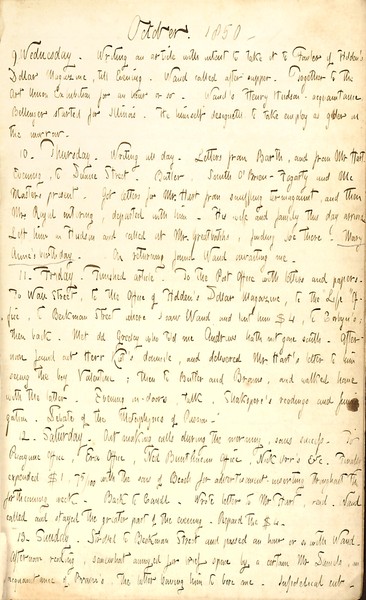 October. 1850.
9 Wednesday. Writing an article with intent to take it to Fowler of Holden's
Dollar Magazine, till evening. Waud called after supper. Together to the
Art Union Exhibition for an hour or so. Waud's Henry Hudson acquaintance
Bellenger started for Illinois. He himself designeth to take employ as gilder on
the morrow.
10. Thursday. Writing all day. Letters from Barth, and from Mr Hart.
Evening, to Street. Butler, Smith O'Brien Fogarty and the
Masters present. Got letters for Mr. Hart from and then
Mr. Royal entering departed with him. His wife and family this day arrive
Left him in Hudson and called at Mr. Greatbatch's, finding Joe there. Mary
Anne's birthday. On returning found Waud awaiting me.
11. Friday. Finished article. To the Post Office with letters and papers.
To Wall Street, to the Office of Holden's Dollar Magazine, to the
, to Beekman Street where I saw Waud and lent him $4, to
then back. Met old Greeley who told me Andrews hath got scuttled. After-
noon found out Herr domicile, and delivered Mr Hart's letter to him
seeing the boy Valentine; then to Butler and Brown, and walked home
with the latter. Evening in-doors, talk, Shakspere's readings and
gation. Debate of the Metaphysics of
12. Saturday. Out making calls during the morning, sans success. To
Office, Era Office, Ned Buntline's Office, Nick &c. Finally
expended $1.75 with the of for advertisement inserting throughout the
forthcoming week. Back to Canal. Wrote letter to Mr Hart, read. Waud
called and stayed the greater part of the evening. Repaid the $4.
13. Sunday. Strolled to Beekman Street and passed an hour or so with Waud.
Afternoon reading, somewhat annoyed for brief space by a certain Mr. , an
acquaintance of Brown's, the latter leaving him to bore me.